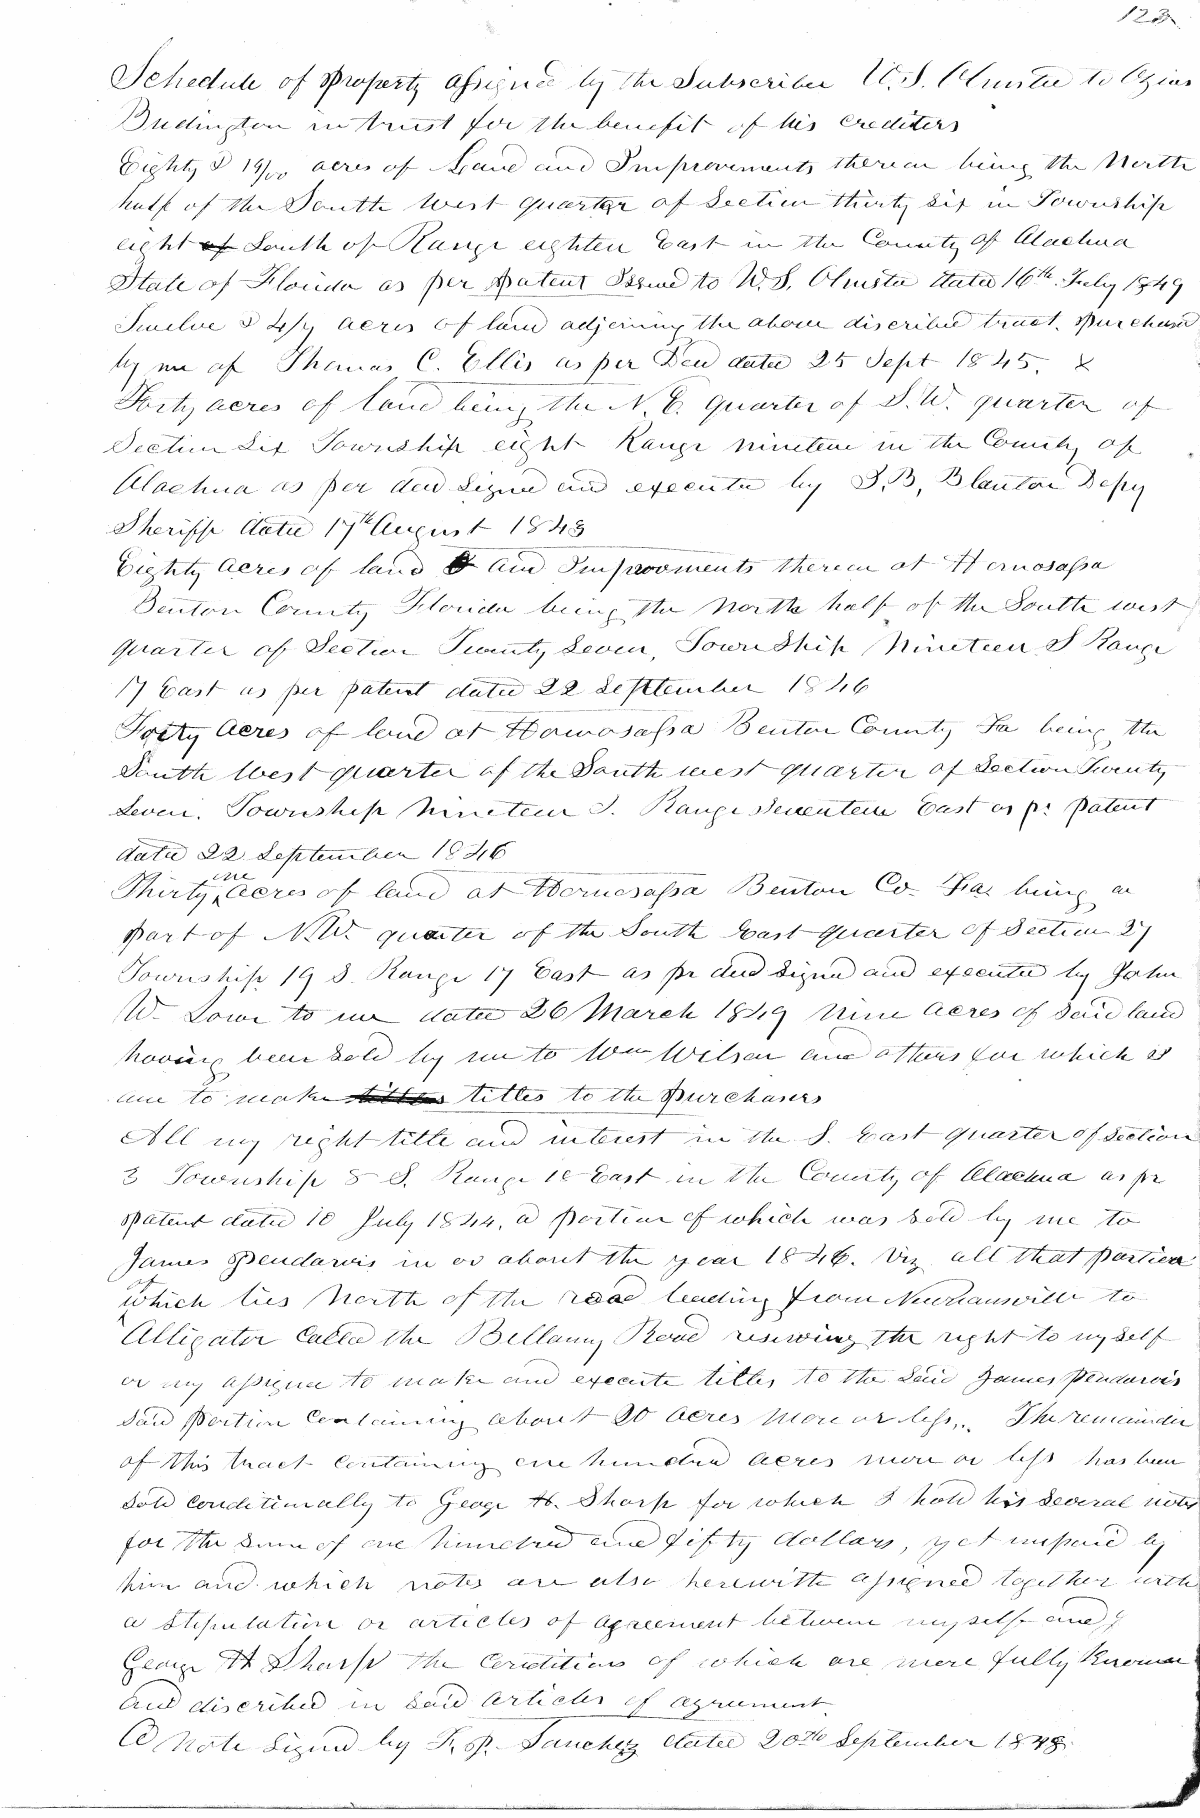 123
Schedule of Property assigned by the Subscriber W. S. Olmstee to Ozias
Budington in trust for the benefit of his crediters
Eighty & 19/00 acres of Land and Improvments therean being the North
half of the South West quarter of Section thirty Six in Township
eight of South of Range eighteen East in the County of Alachua
State of Florida as per patent Issued to W. S. Olmstee dated 16th July 1849
Twelve & 4/4 acres of land adjoining the above discribed tract. purchased
by me of Thomas C. Ellis as per Deed dated 25 Sept 1845. &
Forty acres of land being the N. E. Quarter of S. W. quarter of
Section Six Township eight Range nineteen in the County of
Alachua as per deed Signed and executed by S. B, Blanton Depy
Sheriff dated 17th August 1843
Eighty acres of land & and Improvments therean at Homosassa
Benton County Florida being the North half of the South west
quarter of Section Twenty Seven, Township Nineteen S Range
17 East as per patent dated 22 September 1846
Forty Acres of land at Homosassa Benton County Fa being the
South West quarter of the South west quarter of Section Twenty
Seven. Township Nineteen S. Range Seventeen East as pr patent
dated 22 September 1846
Thirty one acres of land at Homosassa Benton Co. Fa. being a
part of N.W. quarter of the South East quarter of Section 27
Township 19 S. Range 17 East as pr deed Signed and executed by John
W. Lowe to me dated 26 March 1849 Nine acres of said land
having been Sold by me to Wm Wilson and others for which I
am to make titles titles to the purchasers
All my right title and interest in the S. East quarter of Section
3 Township 8 S. Range 18 East in the County of Alachua as pr
patent dated 10 July 1844, a portion of which was Sold by me to
James Pendarvis in or about the year 1846. Viz all that portion
of which lies North of the road leading from Newnansville to
Alligator Called the Bellamy Road reserving the right to myself
or my assignee to make and execute titles to the Said James Pendarvis
Said Portion Containing about 20 acres more or less,. The remainder
of this tract containing one hundred acres more or less has been
Sold conditionally to George H. Sharp for which I hold his Several notes
for the Sum of one hundred and fifty dollars, yet unpaid by
him and which notes are also herewith assigned together with
a Stipulation or articles of agreement between myself and
George H Sharp the Conditions of which are more fully Known
and discribed in Said Articles of agreement.
A Note Signed by F. P. Sanchez dated 20th September 1848